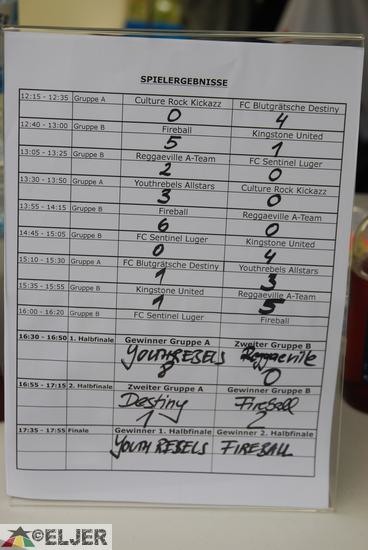 SPIELERGEBNISSE
12:15 - 12:35 Gruppe A Culture Rock Kickazz FC Blutgrätsche Destiny
0 4
12:40 - 13:00 Gruppe B Fireball Kingstone United
5 1
13:05 - 13:25 Gruppe B Reggaeville A-Team FC Sentinel Luger
2 0
13:30 - 13:50 Gruppe A Youthrebels Allstars Culture Rock Kickazz
3 0
13:55 - 14:15 Gruppe B Fireball Reggaeville A-Team
6 0
14:45 - 15:05 Gruppe B FC Sentinel Luger Kingstone United
0 4
15:10 - 15:30 Gruppe A FC Blutgrätsche Destiny Youthrebels Allstars
1 3
15:35 - 15:55 Gruppe B Kingstone United Reggaeville A-Team
1 5
16:00 - 16:20 Gruppe B FC Sentinel Luger Fireball
16:30 - 16:50 1. Halbfinale Gewinner Gruppe A Zweiter Gruppe B
YOUTHREBELS Reggaeville
8 0
16:55 - 17:15 2. Halbfinale Zweiter Gruppe A Gewinner Gruppe B
Destiny Fireball
1 2
17:35 - 17:55 Finale Gewinner 1. Halbfinale Gewinner 2. Halbfinale
YOUTH REBELS FIREBALL
©ELJER